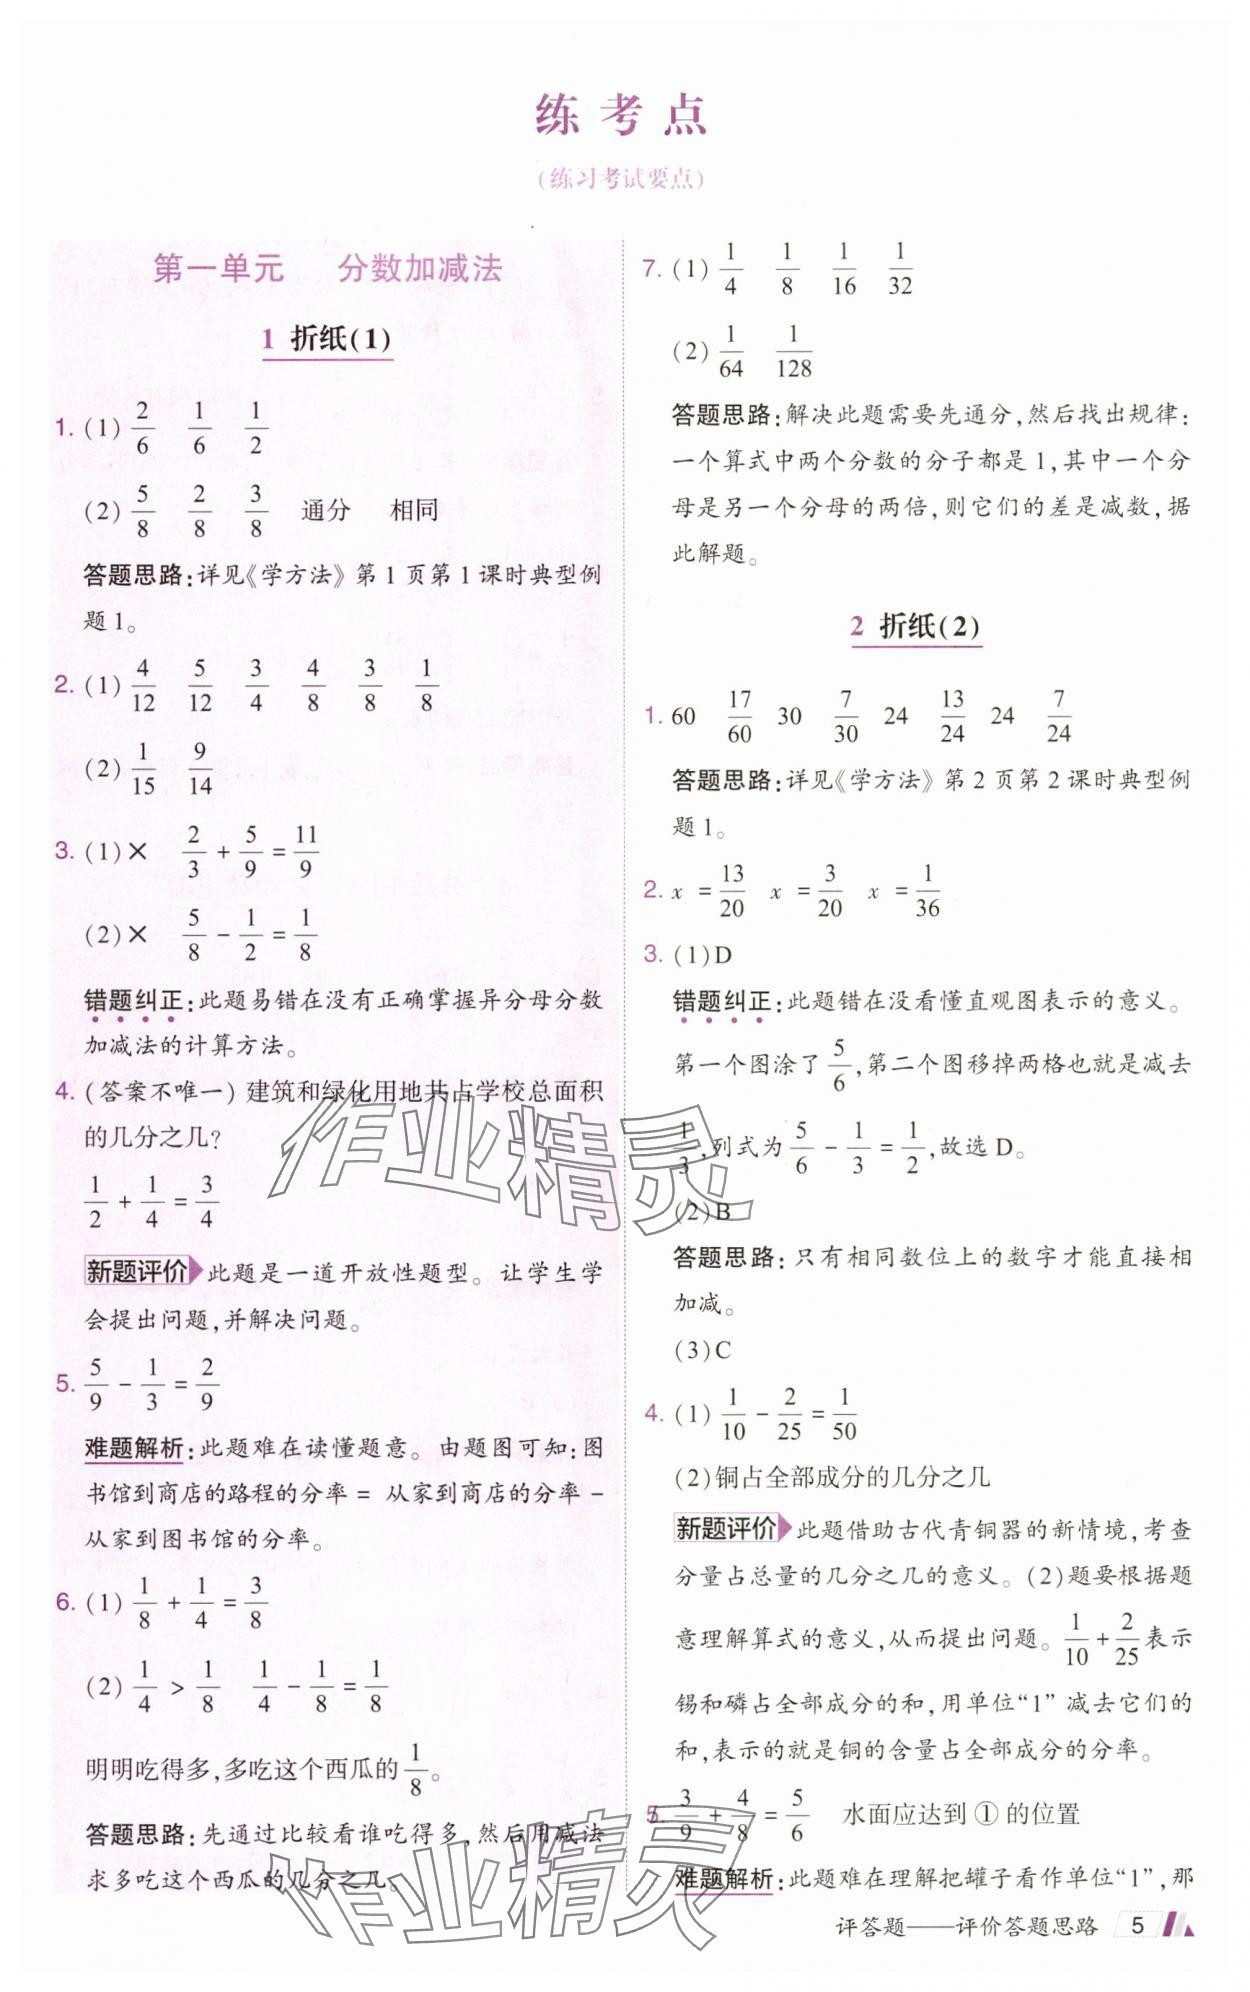 练考点
(练习考试要点)
第一单元 分数加减法
1 折纸(1)
1. (1) 2/6 1/6 1/2
(2) 5/8 2/8 3/8 通分 相同
答题思路:详见《学方法》第1页第1课时典型例
题1。
2. (1) 4/12 5/12 3/4 4/8 3/8 1/8
(2) 1/15 9/14
3. (1)× 2/3 + 5/9 = 11/9
(2)× 5/8 - 1/2 = 1/8
错题纠正:此题易错在没有正确掌握异分母分数
加减法的计算方法。
4. (答案不唯一)建筑和绿化用地共占学校总面积
的几分之几?
1/2 + 1/4 = 3/4
新题评价 此题是一道开放性题型。让学生学
会提出问题,并解决问题。
5. 5/9 - 1/3 = 2/9
难题解析:此题难在读懂题意。由题图可知:图
书馆到商店的路程的分率 = 从家到商店的分率 -
从家到图书馆的分率。
6. (1) 1/8 + 1/4 = 3/8
(2) 1/4 > 1/8 1/4 - 1/8 = 1/8
明明吃得多,多吃这个西瓜的1/8。
答题思路:先通过比较看谁吃得多,然后用减法
求多吃这个西瓜的几分之几。
7. (1) 1/4 1/8 1/16 1/32
(2) 1/64 1/128
答题思路:解决此题需要先通分,然后找出规律:
一个算式中两个分数的分子都是1,其中一个分
母是另一个分母的两倍,则它们的差是减数,据
此解题。
2 折纸(2)
1. 60 17/60 30 7/30 24 13/24 24 7/24
答题思路:详见《学方法》第2页第2课时典型例
题1。
2. x = 13/20 x = 3/20 x = 1/36
3. (1)D
错题纠正:此题错在没看懂直观图表示的意义。
第一个图涂了5/6,第二个图移掉两格也就是减去
1/3,列式为5/6 - 1/3 = 1/2,故选D。
(2)B
答题思路:只有相同数位上的数字才能直接相
加减。
(3)C
4. (1) 1/10 - 2/25 = 1/50
(2)铜占全部成分的几分之几
新题评价 此题借助古代青铜器的新情境,考查
分量占总量的几分之几的意义。(2)题要根据题
意理解算式的意义,从而提出问题。1/10 + 2/25表示
锡和磷占全部成分的和,用单位“1”减去它们的
和,表示的就是铜的含量占全部成分的分率。
5. 3/9 + 4/8 = 5/6 水面应达到①的位置
难题解析:此题难在理解把罐子看作单位“1”,那
评答题——评价答题思路 5
作业精灵
作业精灵